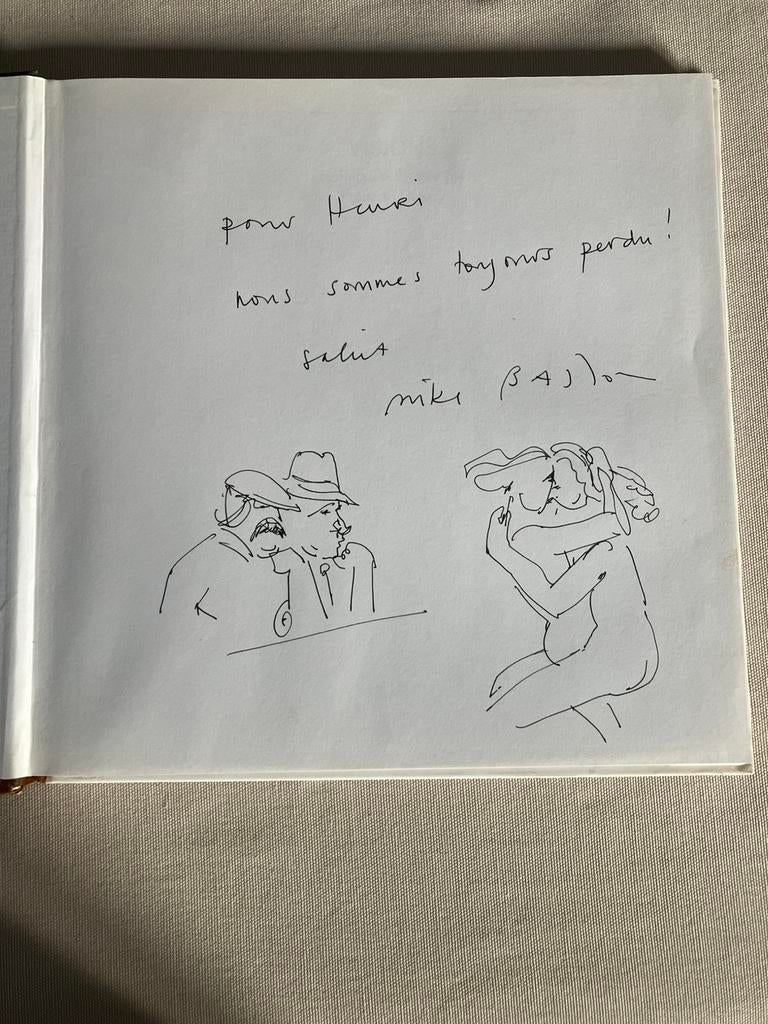 pour Henri
nous sommes toujours perdu!
salut
mike